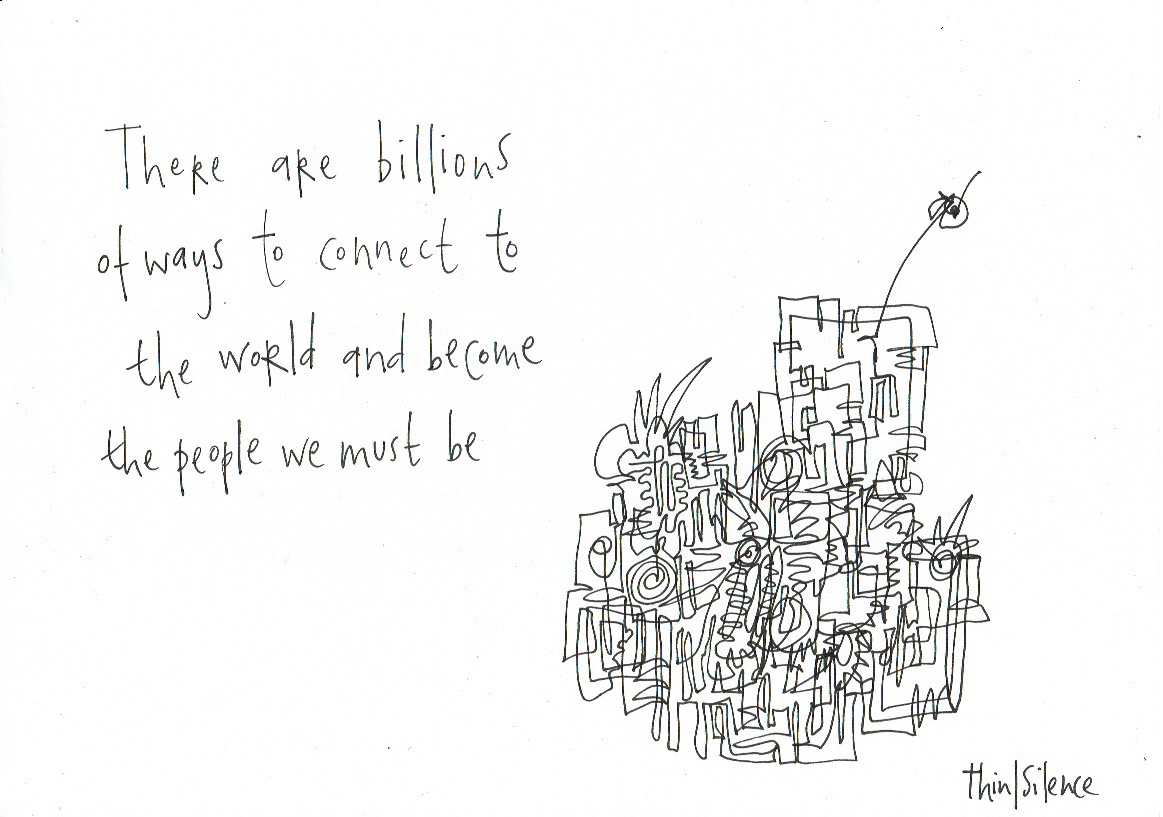 There are billions
of ways to connect to
the world and become
the people we must be
thin|silence